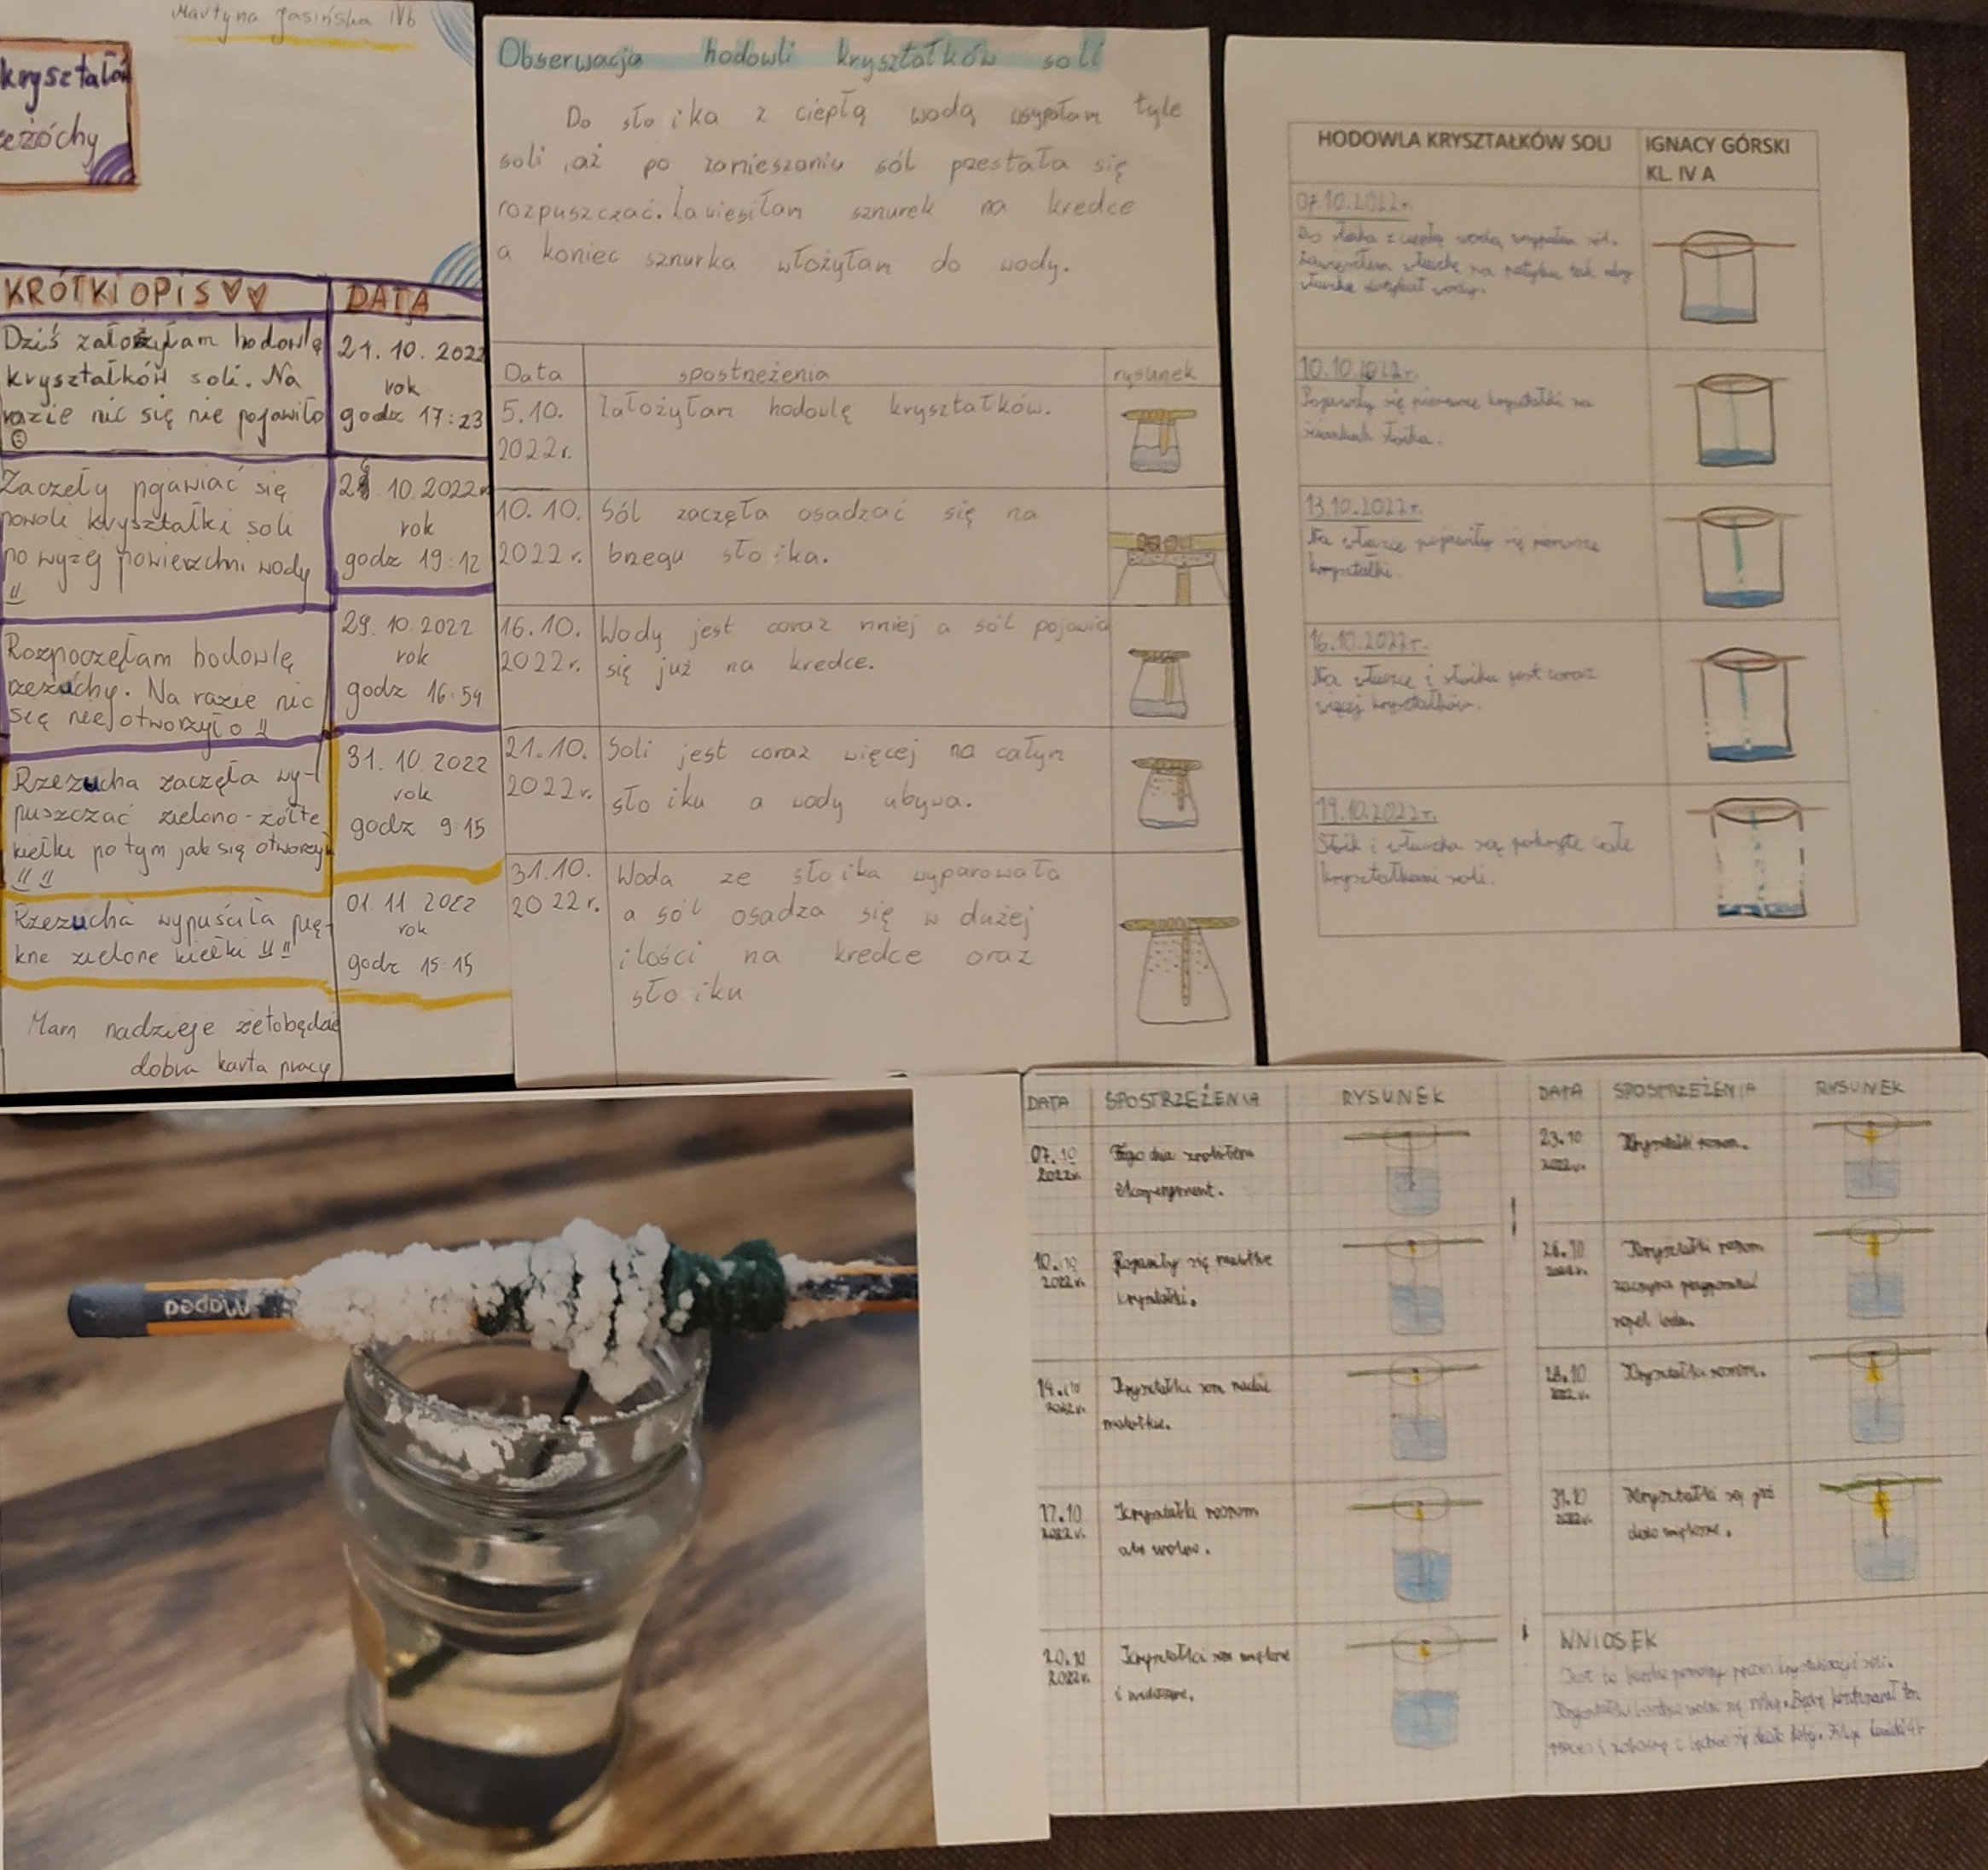 Martyna Jasińska IVb
kryształów
eżóchy
KRÓTKI OPIS
DATA
Dziś założyłam hodowlę
kryształków soli. Na
razie nic się nie pojawiło
21. 10. 2022
rok
godz 17:23
Zaczęły pojawiać się
powoli kryształki soli
powyżej powierzchni wody
10.2022r
rok
godz 19:12
Rozpoczęłam hodowlę
rzeżuchy. Na razie nic
się nie otworzyło
29. 10. 2022
rok
godz 16:54
Rzezucha zaczęła wy-
puszczać zielono-żółte
kiełki po tym jak się otworzy
31. 10. 2022
rok
godz 9:15
Rzezucha wypuściła pię-
kne zielone kiełki
01. 11 2022
rok
godz 15:15
Mam nadzieje żetobędzie
dobra karta pracy
Obserwacja hodowli kryształków soli
Do słoika z ciepłą wodą wsypałam tyle
soli, aż po zamieszaniu sól przestała się
rozpuszczać. Zawiesiłam sznurek na kredce
a koniec sznurka włożyłam do wody.
Data spostrzeżenia rysunek
5.10.
2022r.
Założyłam hodowlę kryształków.
10.10.
2022 r.
Sól zaczęła osadzać się na
brzegu słoika.
16.10.
2022r.
Wody jest coraz mniej a sól pojawia
się już na kredce.
21.10.
2022r.
Soli jest coraz więcej na całym
słoiku a wody ubywa.
31.10.
2022 r.
Woda ze słoika wyparowała
a sól osadza się w dużej
ilości na kredce oraz
słoiku
HODOWLA KRYSZTAŁKÓW SOLI
IGNACY GÓRSKI
KL. IV A
07.10.2022r.
Do słoika z ciepłą wodą wsypałem sól.
Zawiesiłem włóczkę na patyku tak aby
włóczka dotykał wody.
10.10.2022r.
Pojawiły się pierwsze kryształki na
ściankach słoika.
13.10.2022r.
Na włóczce pojawiły się pierwsze
kryształki.
16.10.2022r.
Na włóczce i słoiku jest coraz
więcej kryształków.
19.10.2022r.
Słoik i włóczka są pokryte całe
kryształkami soli.
Maped
DATA SPOSTRZEŻENIA RYSUNEK
07.10
2022r.
Tego dnia zrobiłem
eksperyment.
10.10
2022r.
Pojawiły się malutkie
kryształki.
14.10
2022r.
Kryształki są nadal
malutkie.
17.10
2022r.
Kryształki rosną
ale wolno.
20.10
2022r.
Kryształki są większe
i
DATA SPOSTRZEŻENIA RYSUNEK
23.10
2022r.
Kryształki rosną.
26.10
2022r.
Kryształki rosną
zaczyna przypominać
sopel lodu.
28.10
2022r.
Kryształki rosną.
31.10
2022r.
Kryształki są już
dużo większe.
WNIOSEK
Jest to bardzo powolny proces krystalizacji soli.
Kryształki bardzo wolno się robią. Będę kontynuował ten
proces i zobaczę i będzie się działo dalej. Filip